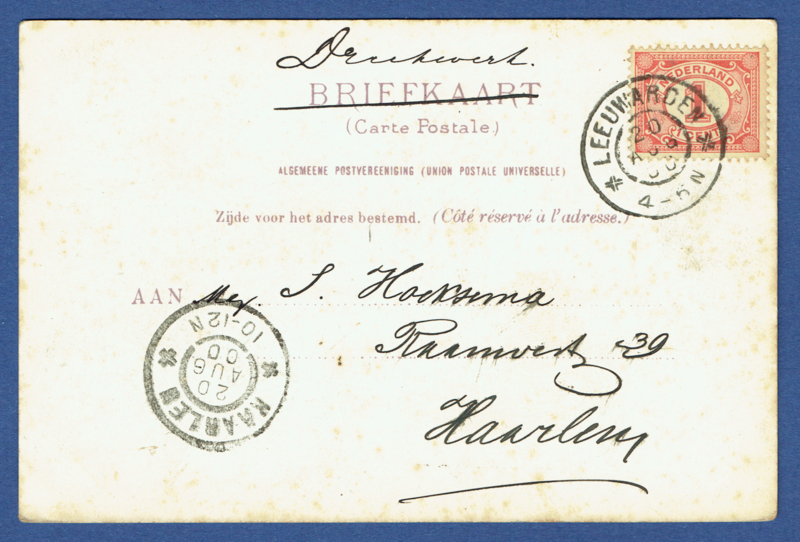 Drukwerk.
BRIEFKAART
(Carte Postale.)
ALGEMEENE POSTVEREENIGING (UNION POSTALE UNIVERSELLE)
Zijde voor het adres bestemd. (Côté réservé à l'adresse.)
NEDERLAND
1
CENT
LEEUWARDEN
20
AUG
00
4-5N
AAN Mej. S. Hoeksema
Raamvest 39
Haarlem
HAARLEM
20
AUG
00
10-12N